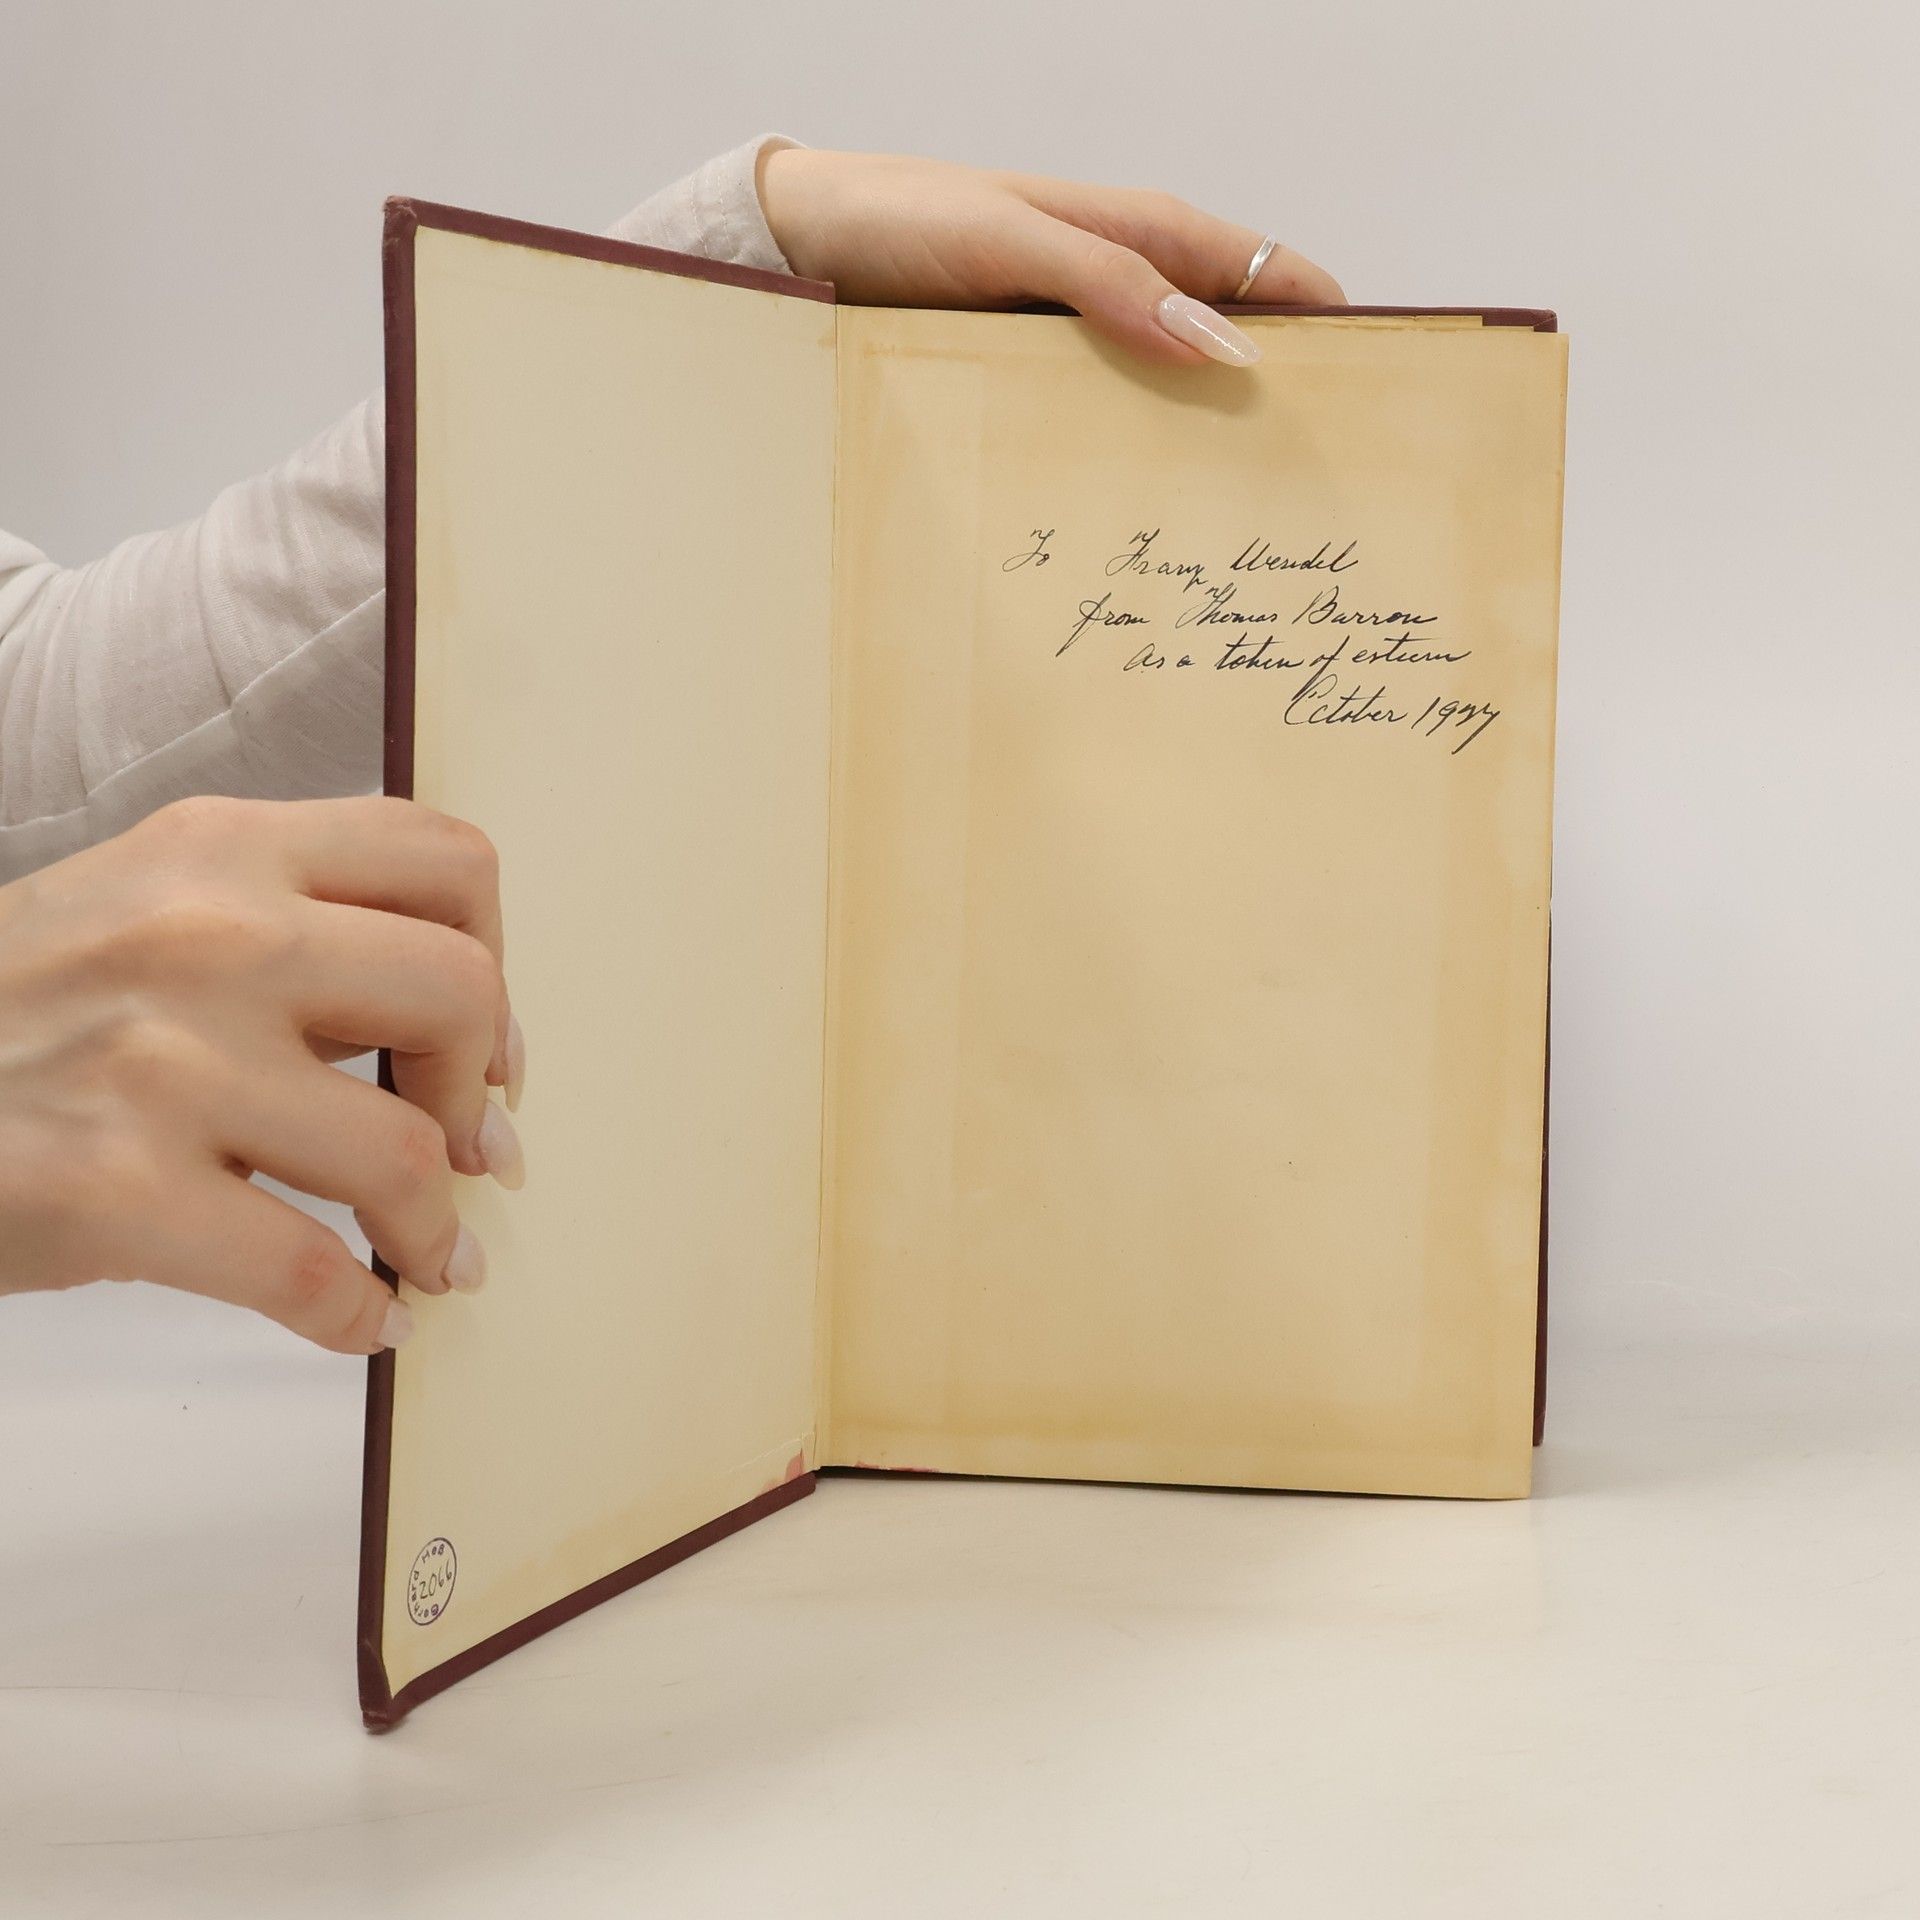 To Franz Wendel
from Thomas Barron
As a token of esteem
October 19
Gerhard Heß
2066